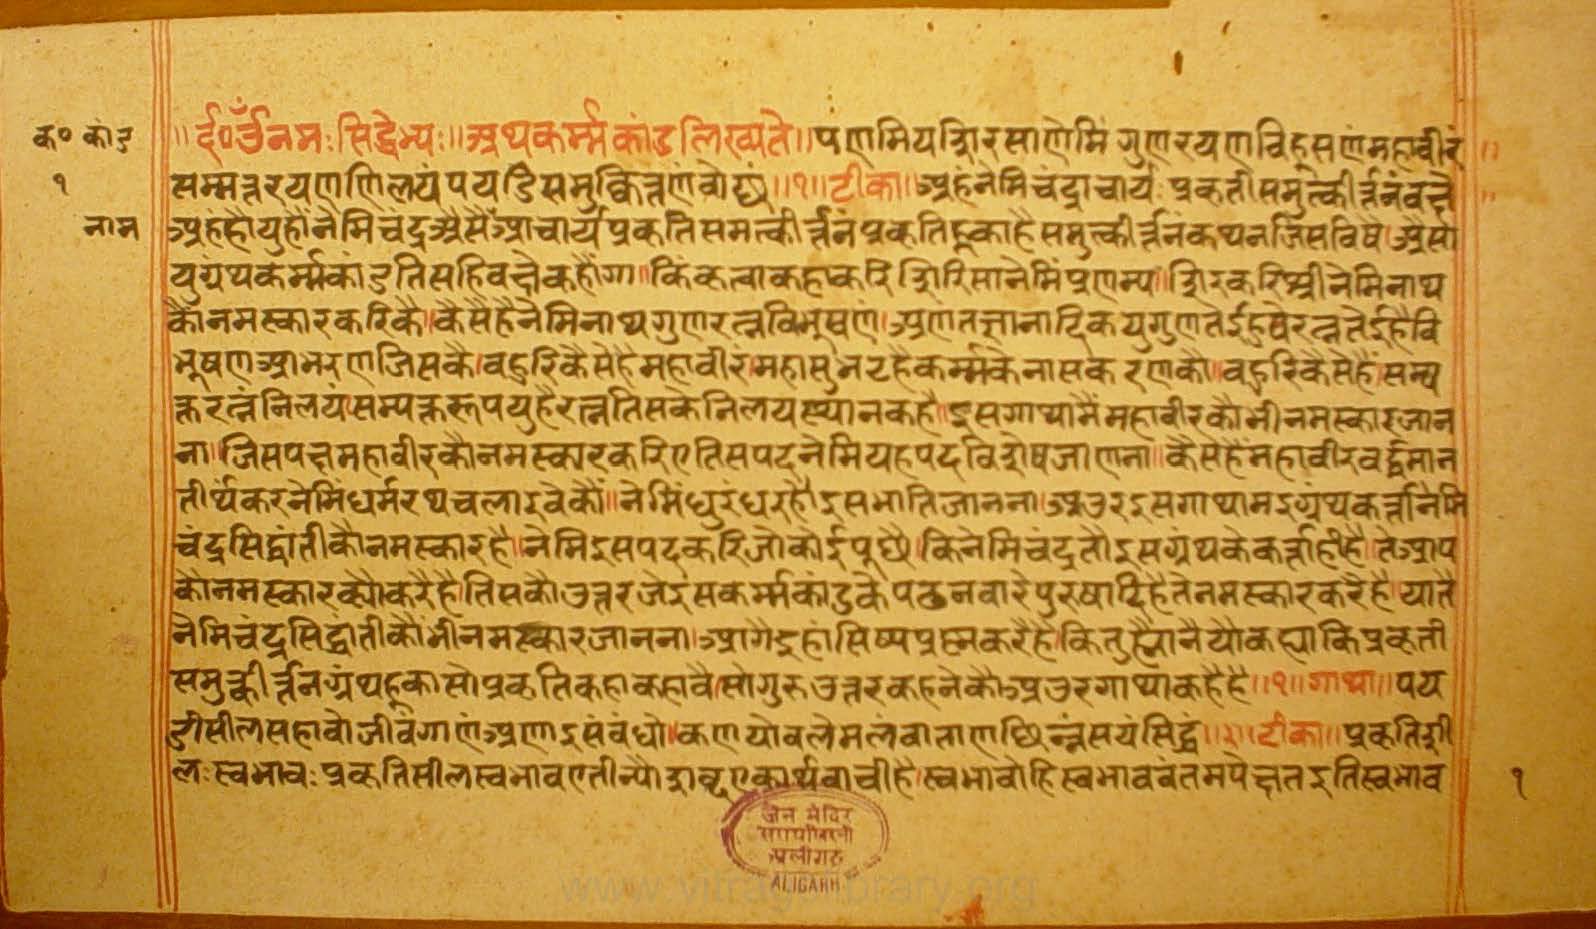 क० कांड
१
नाम
॥ र्द०॥ ॐ नमः सिद्धेभ्यः॥ अथ कर्म्मकांड लिख्यते॥ पणमिय शिरसा णेमिं गुणरयणविहूसणं महावीरं
सम्मत्तरयणणिलयं पयडिसमुक्कित्तणं वोछं॥१॥ टीका॥ अहं नेमिचंद्राचार्यः प्रकृतीसमुत्कीर्त्तनं वक्षे
अहहौ युहौ नेमिचद्र असै आचार्य प्रकृतिसमत्कीर्त्तनं प्रकृतिहूका है समुत्कीर्त्तनं कथन जिसविषै। असा
यु ग्रंथ कर्म्मकांड तिसहि वक्षे कहौंगा॥ किं कत्वा कहा करि शिरिसा नेमिं प्रणम्य॥ शिर करि श्रीनेमिनाथ
कौ नमस्कार करिकै। कैसै है नेमिनाथ गुणरत्नविभूषणं। अणंतज्ञानादिक यु गुण तेई हुवे रत्न तेई है वि
भूषण आभरण जिसकै। वहुरि कैसे है महावीरं। महासुभट है कर्म्मके नास करणकौ॥ वहुरि कैसे हैं। सम्य
क्तरत्नंनिलयं सम्यक्तरूप यु है रत्न तिसके निलय स्थान कहै॥ इस गाथामैं महावीरकौ भी नमस्कार जान
ना॥ जिस पक्ष महावीरकौ नमस्कार करिए तिस पद नेमि यह पद विशेष जाणना॥ कैसे हैं महावीर वर्द्धमान
तीर्थंकर नेमिं धर्मरथ चलाइवेकौं॥ नेमिं धुरंधर है। इस भाति जानना। अउर इस गाथामइ ग्रंथकर्त्ता नेमि
चंद्र सिद्धांतीकौ नमस्कार है। नेमि इस पद करि जो कोई पूछै। कि नेमिचंद्र तौ इस ग्रंथके कर्त्ता ही है। ते आप
कौ नमस्कार क्यौ करै है। तिसकौ उत्तर जे इस कर्म्मकांडके पठनवारे पुरुषादि है ते नमस्कार करै है। यातै
नेमिचंद्र सिद्धांतीकौ भी नमस्कार जानना। आगै इहां सिष्य प्रश्न करै है। कि तुह्मौनै यौ कह्या कि प्रकृती
समुत्कीर्त्तन ग्रंथ हूका सो प्रकृति कहा कहावै। सो गुरु उत्तर कहनेकौ अउर गाथा कहै है॥१॥ गाथा॥ पय
डी सील सहावो जीवंगाणं अणाइसंबंधो॥ कणयोवले मलं वा ताणछिन्नं सयं सिद्धं॥२॥ टीका॥ प्रकृति शी
लः स्वभावः प्रकृति सील स्वभाव ए तीन्यौ शब्द एकार्थवाची है। स्वभावो हि स्वभाववंतमपेक्षत इति स्वभाव
१
जैन मंदिर
अलीगढ
ALIGARH
www.vitragalibrary.org